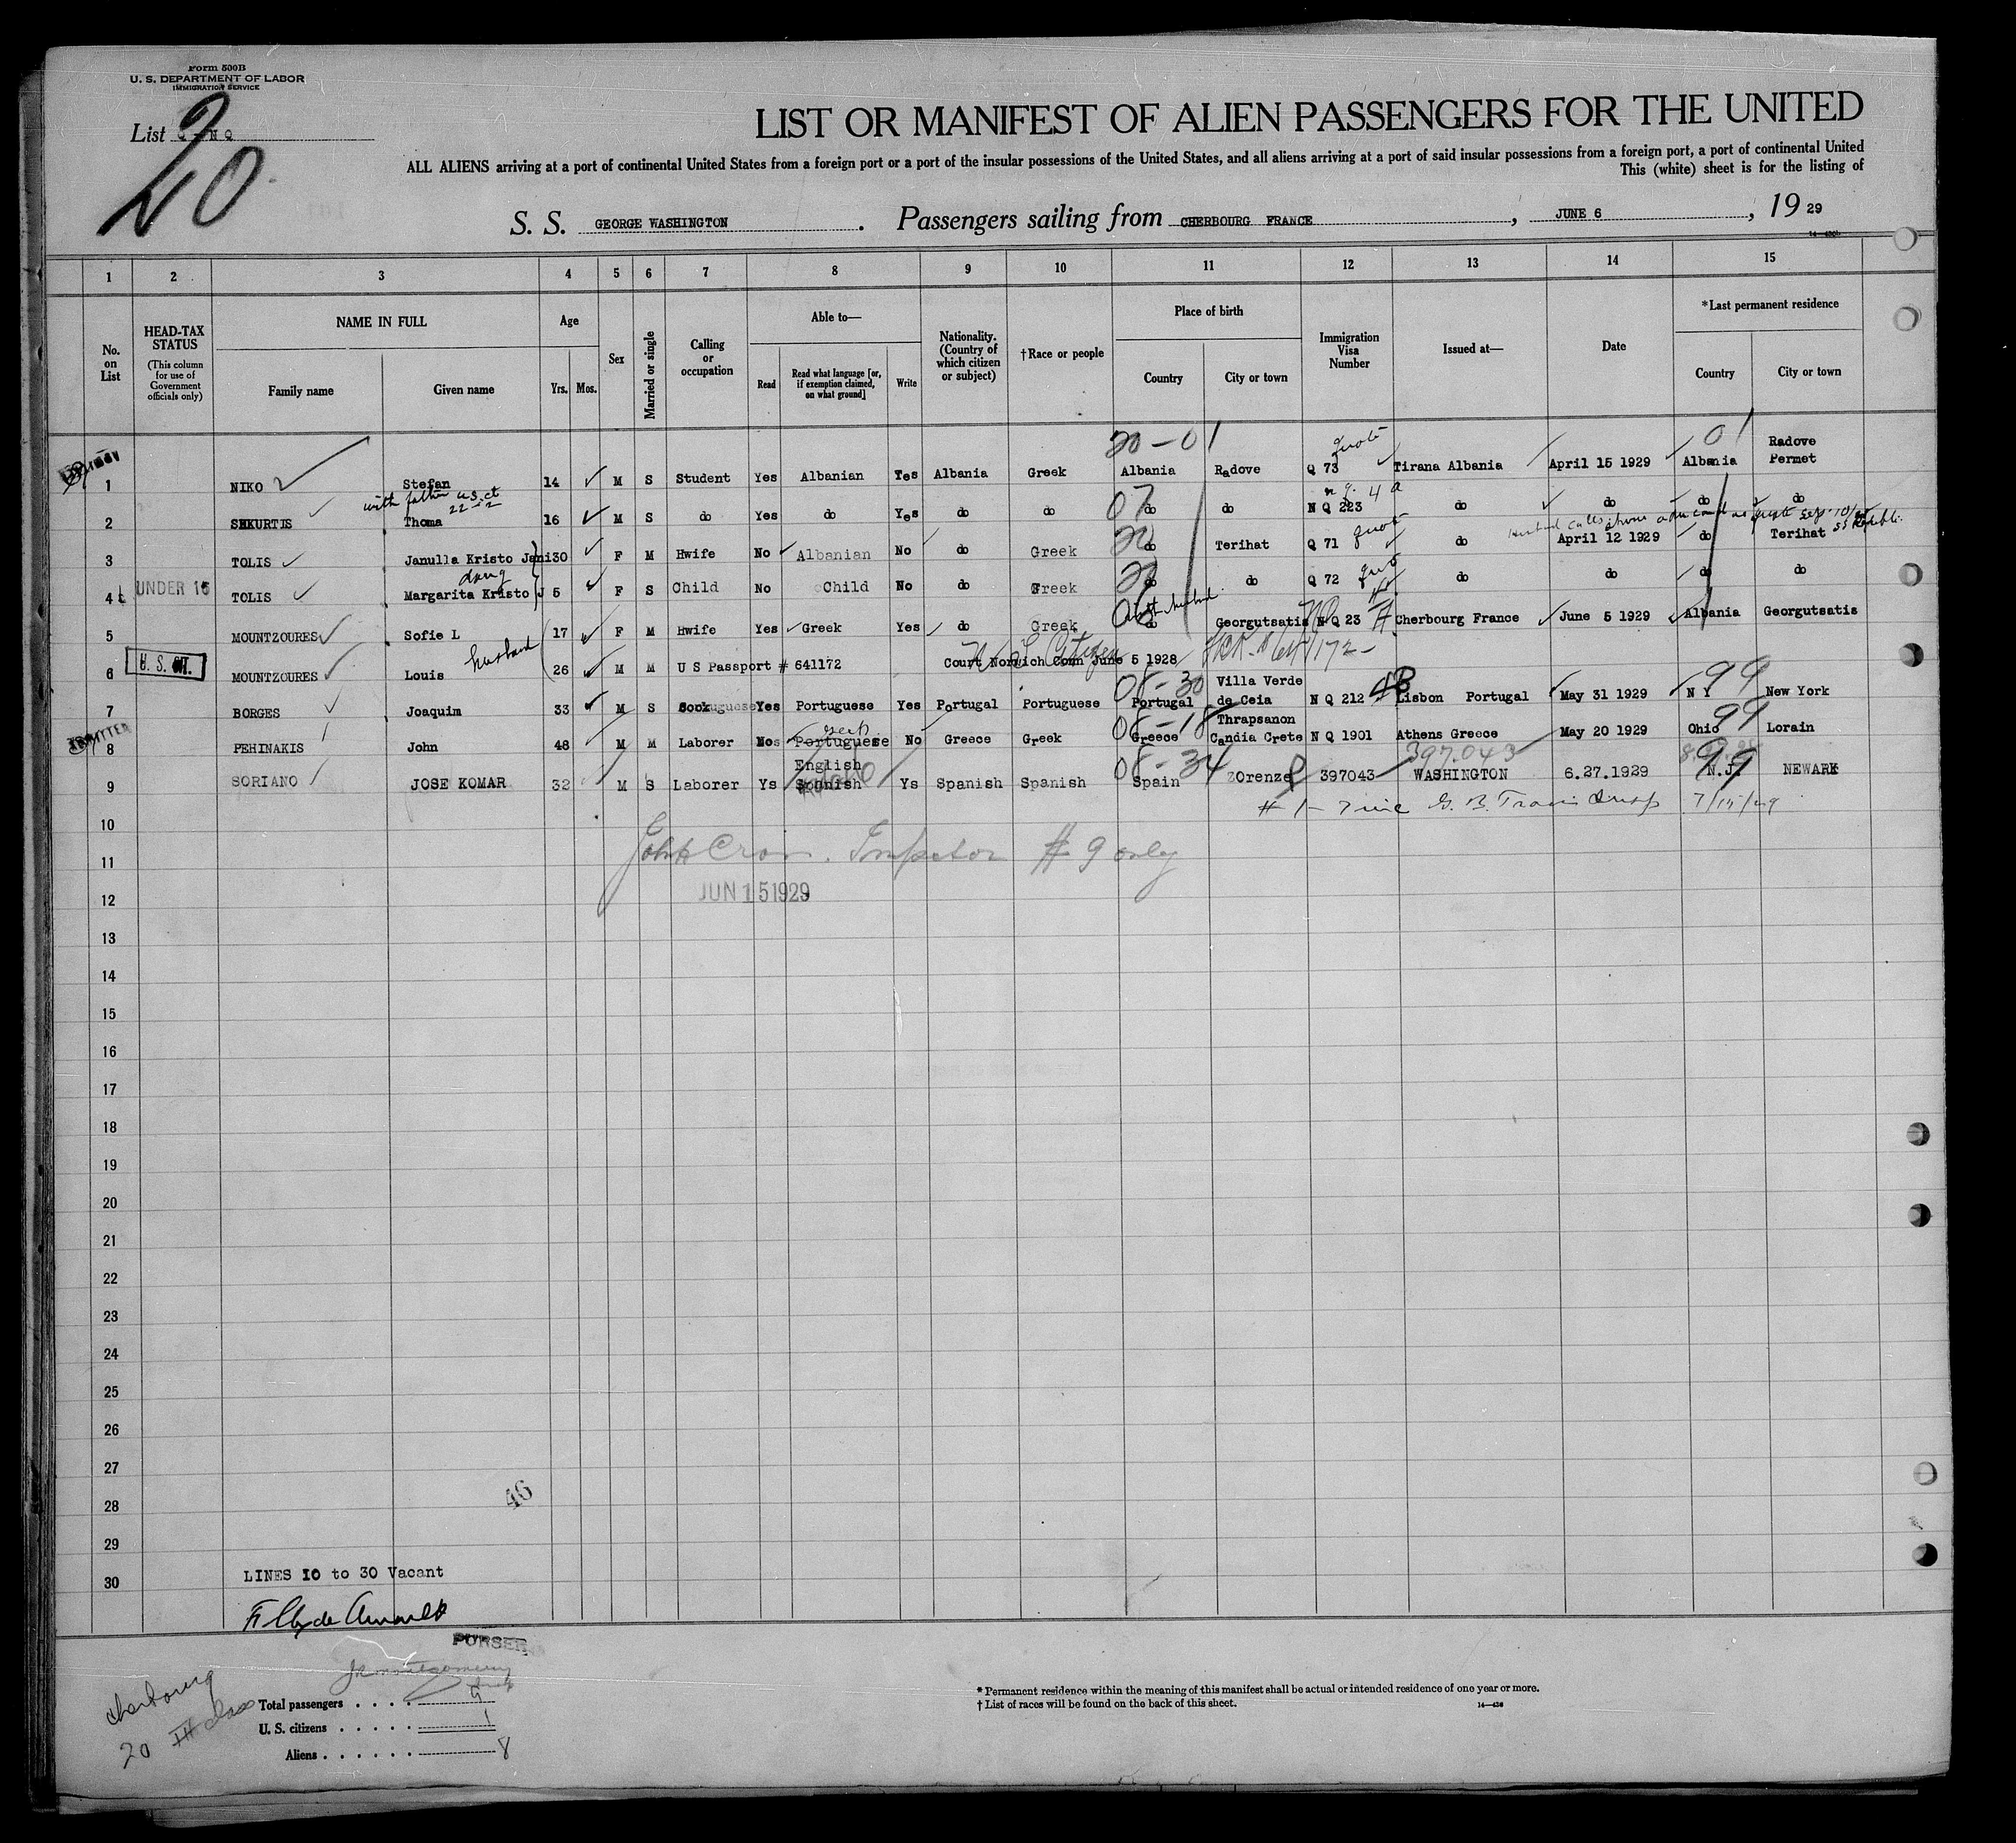 Form 500B
U. S. DEPARTMENT OF LABOR
IMMIGRATION SERVICE
List Q - N Q
20
LIST OR MANIFEST OF ALIEN PASSENGERS FOR THE UNITED
ALL ALIENS arriving at a port of continental United States from a foreign port or a port of the insular possessions of the United States, and all aliens arriving at a port of said insular possessions from a foreign port, a port of continental United
This (white) sheet is for the listing of
S. S. GEORGE WASHINGTON . Passengers sailing from CHERBOURG FRANCE , JUNE 6 , 19 29
1 2 3 4 5 6 7 8 9 10 11 12 13 14 15
No. on List
HEAD-TAX STATUS
(This column for use of Government officials only)
NAME IN FULL
Family name
Given name
Age
Yrs.
Mos.
Sex
Married or single
Calling or occupation
Able to—
Read
Read what language [or, if exemption claimed, on what ground]
Write
Nationality. (Country of which citizen or subject)
†Race or people
Place of birth
Country
City or town
Immigration Visa Number
Issued at—
Date
*Last permanent residence
Country
City or town
20 - 01 quota 01 Radove
1 NIKO Stefan 14 M S Student Yes Albanian Yes Albania Greek Albania Radove Q 73 Tirana Albania April 15 1929 Albania Permet
with father U.S. ct 22-2 07 n q. 4 a
2 SHKURTIS Thoma 16 M S do Yes do Yes do do do do N Q 223 do do do do
20 quota
3 TOLIS Janulla Kristo Jani 30 F M Hwife No Albanian No do Greek do Terihat Q 71 do April 12 1929 do Terihat
UNDER 16 daug 20
4 TOLIS Margarita Kristo J 5 F S Child No Child No do Greek do do Q 72 do do do do
5 MOUNTZOURES Sofie L 17 F M Hwife Yes Greek Yes do Greek do Georgutsatis N Q 23 Cherbourg France June 5 1929 Albania Georgutsatis
U. S. CIT. husband U.S. Citizen
6 MOUNTZOURES Louis 26 M M U S Passport # 641172 Court Norwich Conn June 5 1928
08 - 30 Villa Verde 4B 99
7 BORGES Joaquim 33 M S Cook Yes Portuguese Yes Portugal Portuguese Portugal de Ceia N Q 212 Lisbon Portugal May 31 1929 N Y New York
08 - 18 Thrapsanon 99
8 PEHINAKIS John 48 M M Laborer No Portuguese No Greece Greek Greece Candia Crete N Q 1901 Athens Greece May 20 1929 Ohio Lorain
English 08 - 34 397.043 99
9 SORIANO JOSE KOMAR 32 M S Laborer Ys Spanish Ys Spanish Spanish Spain Orenze 397043 WASHINGTON 6.27.1929 N.J. NEWARK
# 1 - 7 inc G. B. Travis Insp 7/15/29
10
11 John Cron. Inspector # 9 only
12 JUN 15 1929
13
14
15
16
17
18
19
20
21
22
23
24
25
26
27
28
46
29
LINES 10 to 30 Vacant
30
PURSER
Cherbourg
20 III class
Total passengers . . . . 9
U. S. citizens . . . . . 1
Aliens . . . . . . 8
* Permanent residence within the meaning of this manifest shall be actual or intended residence of one year or more.
† List of races will be found on the back of this sheet.